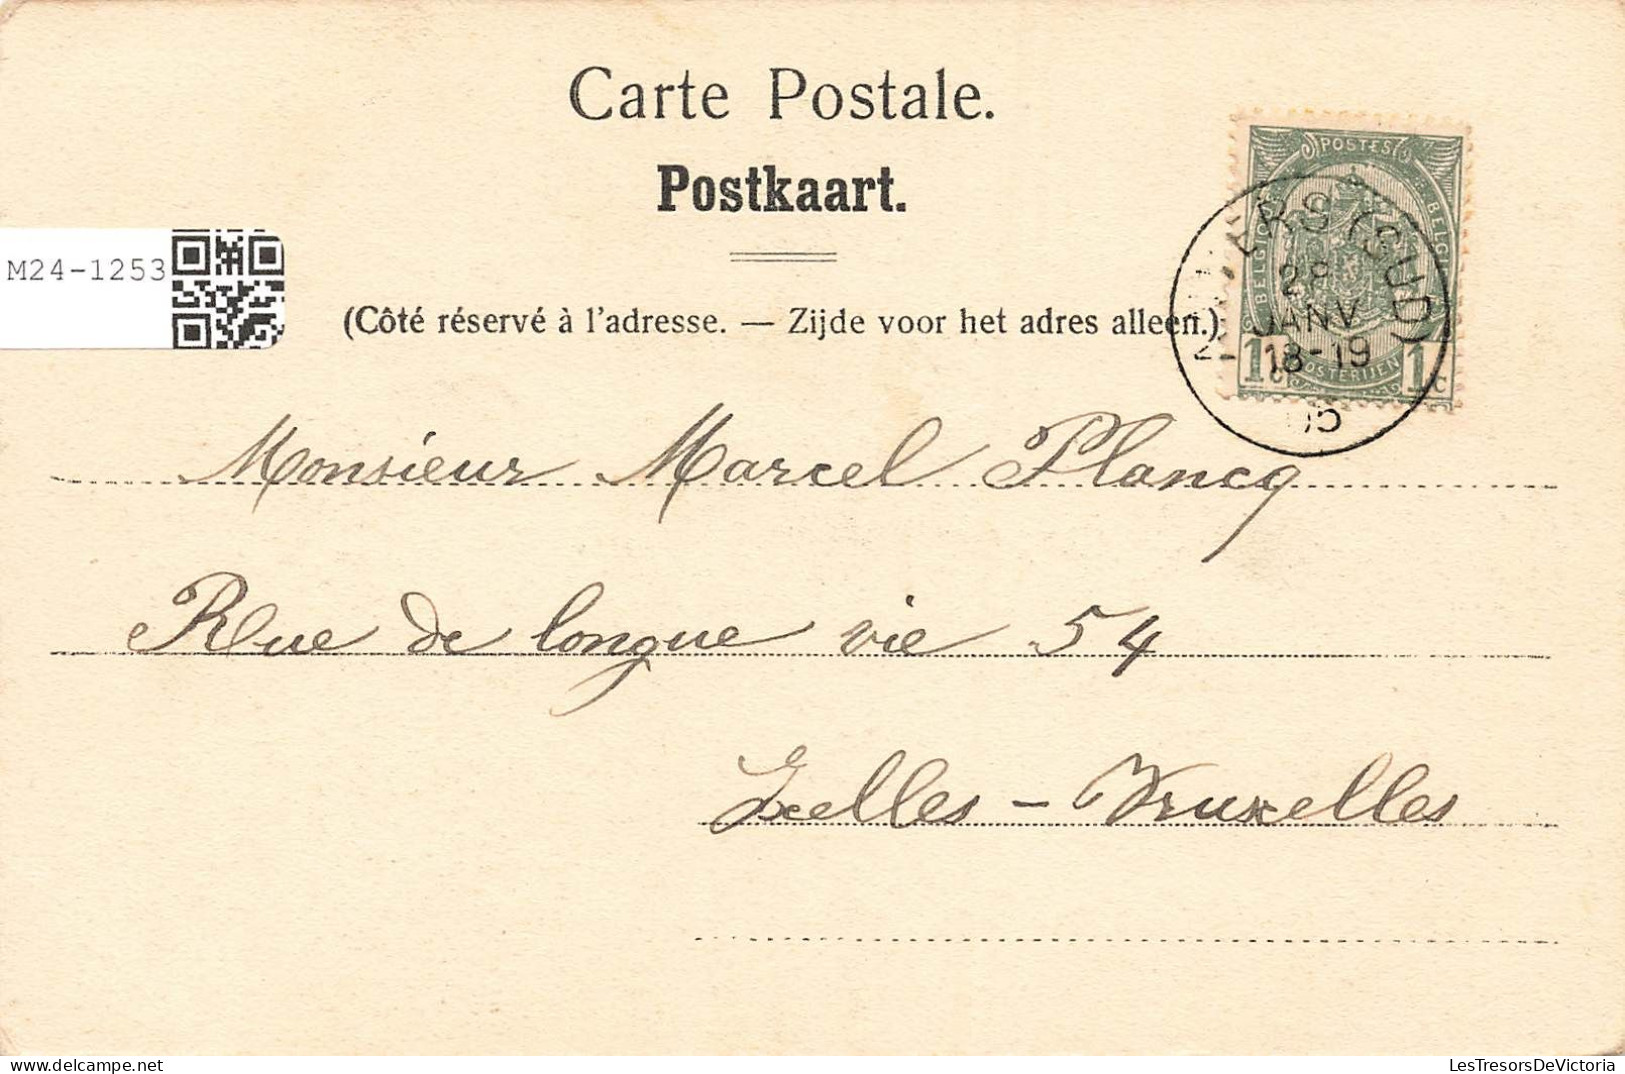 Carte Postale.
Postkaart.
M24-1253
(Côté réservé à l'adresse. — Zijde voor het adres alleen.)
POSTES
BELGIQUE
BELGIË
POSTERIJEN
1c 1c
(SUD)
28
JANV
18-19
05
Monsieur Marcel Plancq
Rue de longue vie 54
Ixelles - Bruxelles
LesTresorsDeVictoria